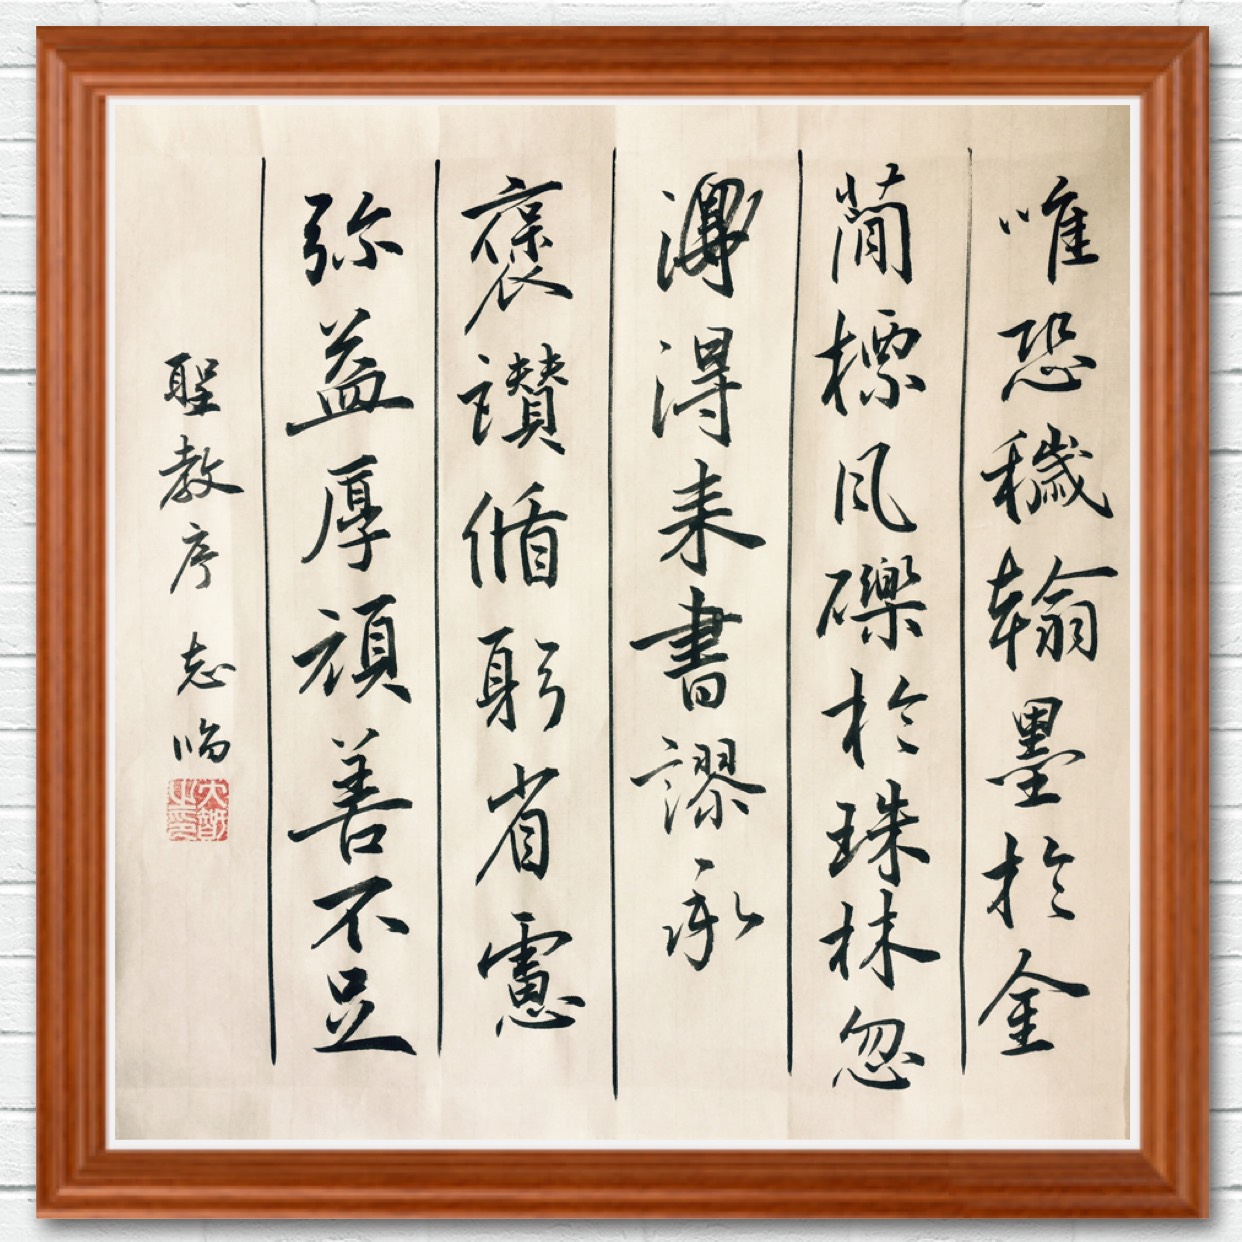 唯恐穢翰墨於金
簡標瓦礫於珠林忽
得来書謬承
褒讚循躬省慮
弥益厚顏善不足
聖教序 志臨